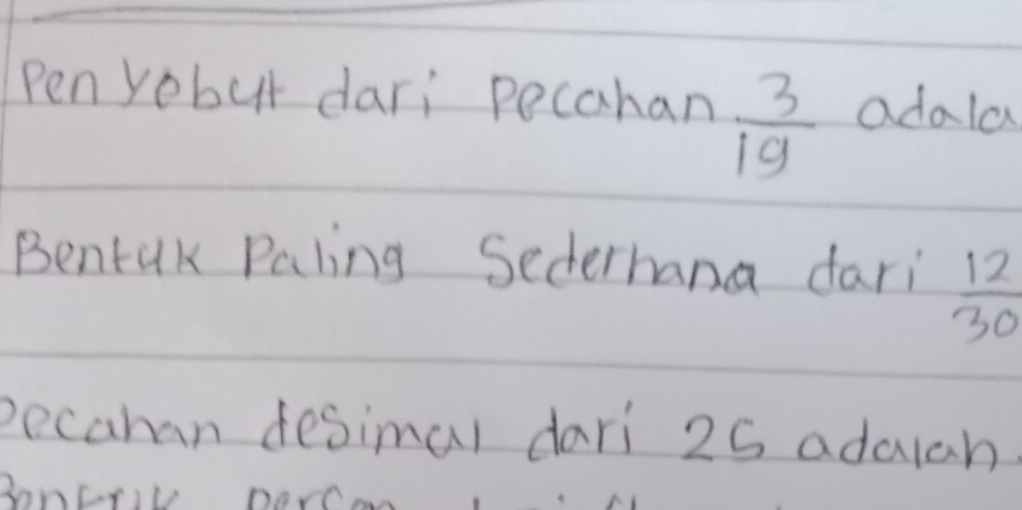 Penyebut dari Pecahan 3/19 adala
Bentuk Paling Sederhana dari 12/30
Pecahan desimal dari 25 adalah